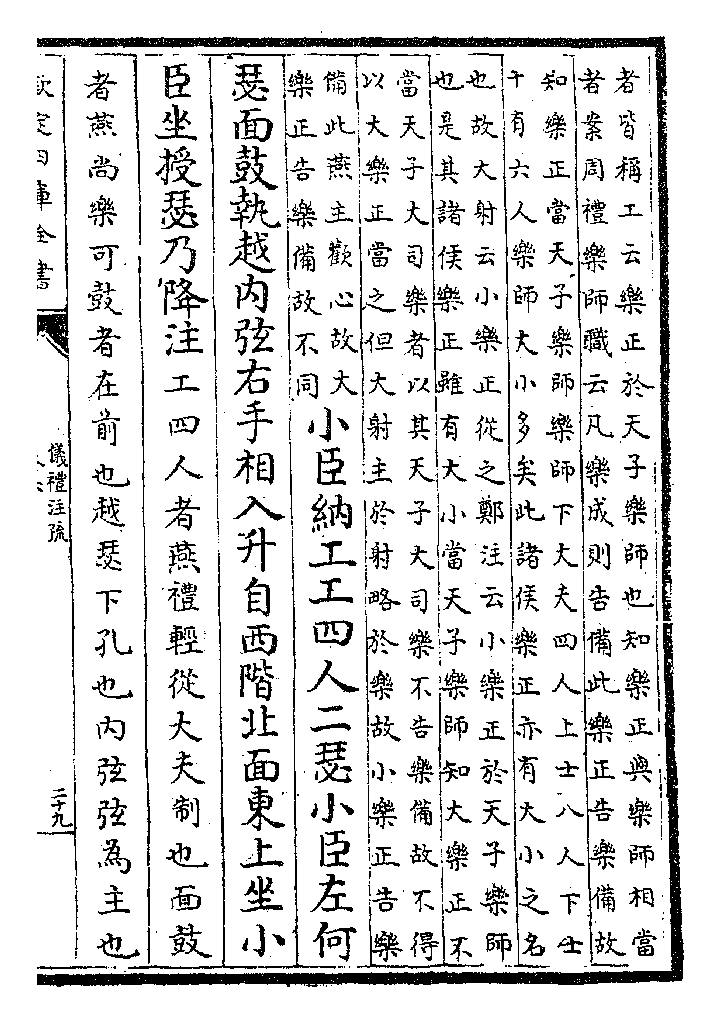 者皆稱工云樂正於天子樂師也知樂正與樂師相當
者案周禮樂師職云凡樂成則告備此樂正告樂備故
知樂正當天子樂師樂師下大夫四人上士八人下士
十有六人樂師大小多矣此諸侯樂正亦有大小之名
也故大射云小樂正從之鄭注云小樂正於天子樂師
也是其諸侯樂正雖有大小當天子樂師知大樂正不
當天子大司樂者以其天子大司樂不告樂備故不得
以大樂正當之但大射主於射略於樂故小樂正告樂
備此燕主歡心故大
樂正告樂備故不同
小臣納工工四人二瑟小臣左何
瑟面鼓執越内弦右手相入升自西階北面東上坐小
臣坐授瑟乃降注工四人者燕禮輕從大夫制也面鼓
者燕尚樂可鼓者在前也越瑟下孔也内弦弦為主也
欽定四庫全書
儀禮注疏
二十九